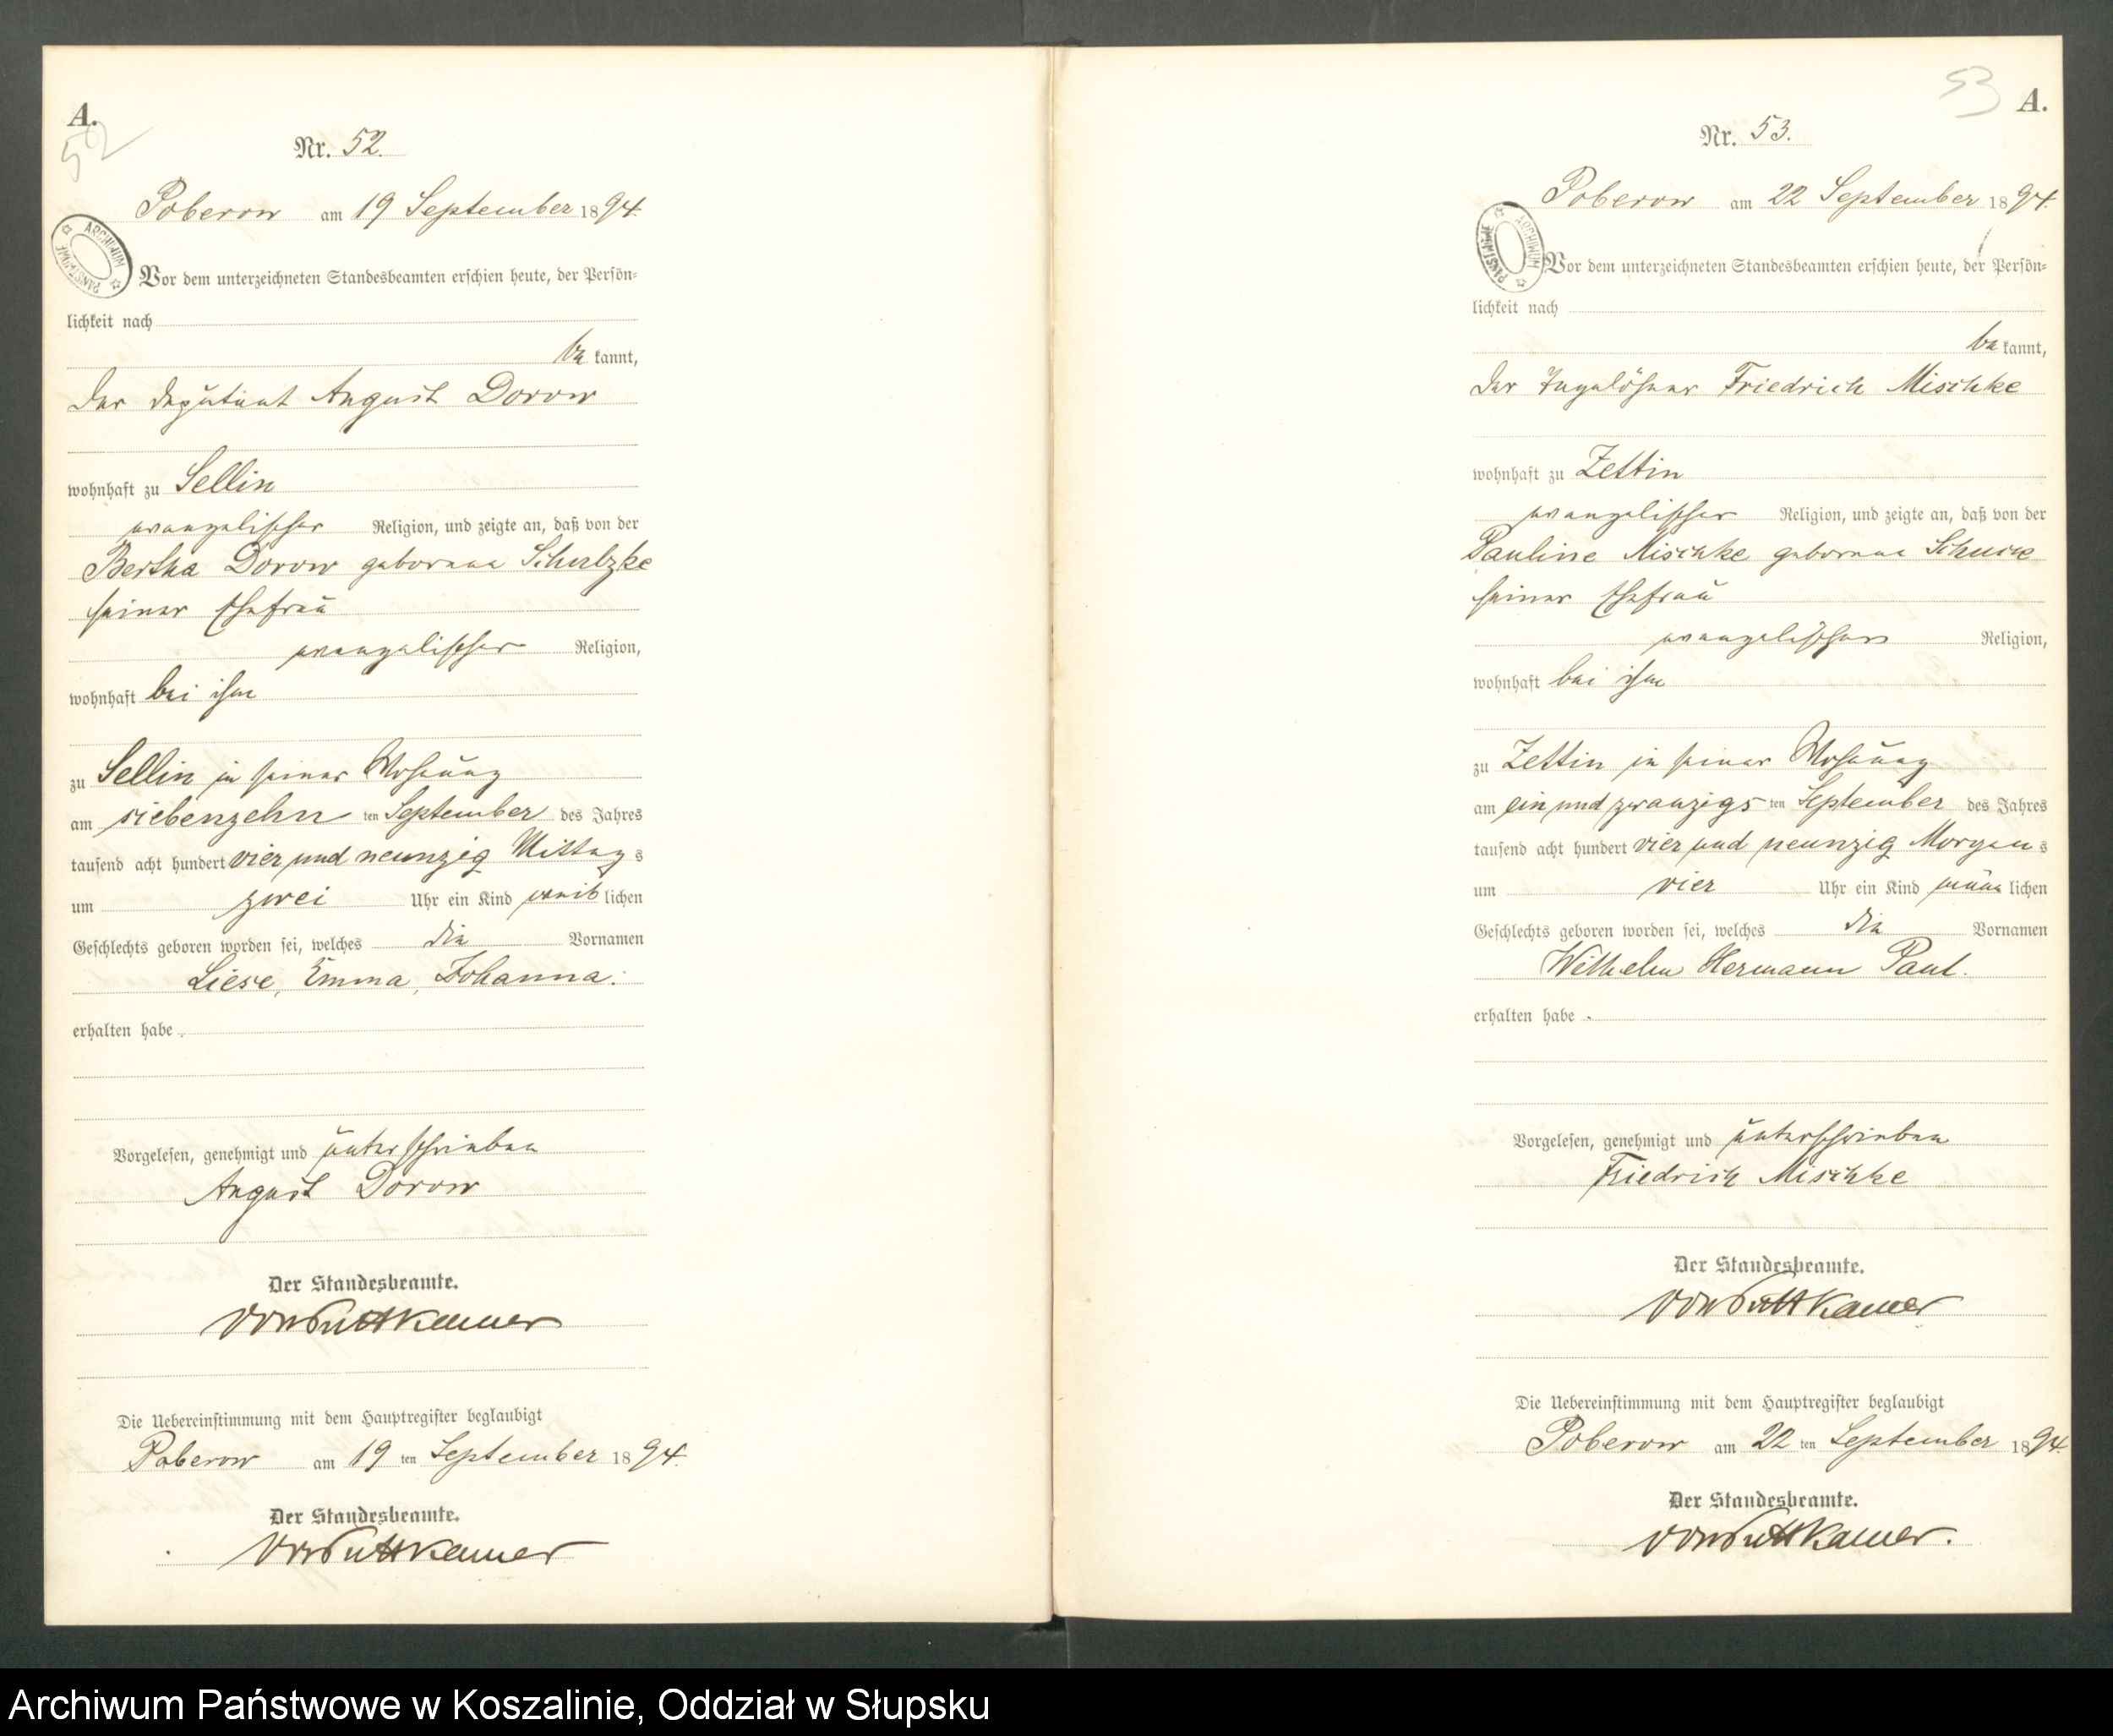 A.
52
Nr. 52.
Poberow am 19 September 1894.
ARCHIWUM PAŃSTWOWE
Vor dem unterzeichneten Standesbeamten erschien heute, der Persön-
lichkeit nach
bekannt,
der Deputant August Dorow
wohnhaft zu Sellin
evangelischer Religion, und zeigte an, daß von der
Bertha Dorow geborene Schulzke
seiner Ehefrau
evangelischer Religion,
wohnhaft bei ihm
zu Sellin in seiner Wohnung
am siebenzehn ten September des Jahres
tausend acht hundert vier und neunzig Mittags
um zwei Uhr ein Kind weiblichen
Geschlechts geboren worden sei, welches die Vornamen
Liese, Emma, Johanna.
erhalten habe.
Vorgelesen, genehmigt und unterschrieben
August Dorow
Der Standesbeamte.
von Puttkamer
Die Uebereinstimmung mit dem Hauptregister beglaubigt
Poberow am 19 ten September 1894.
Der Standesbeamte.
von Puttkamer
53
A.
Nr. 53.
Poberow am 22 September 1894.
ARCHIWUM PAŃSTWOWE
Vor dem unterzeichneten Standesbeamten erschien heute, der Persön-
lichkeit nach
bekannt,
der Tagelöhner Friedrich Mischke
wohnhaft zu Zettin
evangelischer Religion, und zeigte an, daß von der
Pauline Mischke geborene
seiner Ehefrau
evangelischer Religion,
wohnhaft bei ihm
zu Zettin in seiner Wohnung
am ein und zwanzigs ten September des Jahres
tausend acht hundert vier und neunzig Morgens
um vier Uhr ein Kind männlichen
Geschlechts geboren worden sei, welches die Vornamen
Wilhelm Hermann Paul.
erhalten habe.
Vorgelesen, genehmigt und unterschrieben
Friedrich Mischke
Der Standesbeamte.
von Puttkamer
Die Uebereinstimmung mit dem Hauptregister beglaubigt
Poberow am 22 ten September 1894.
Der Standesbeamte.
von Puttkamer.
Archiwum Państwowe w Koszalinie, Oddział w Słupsku